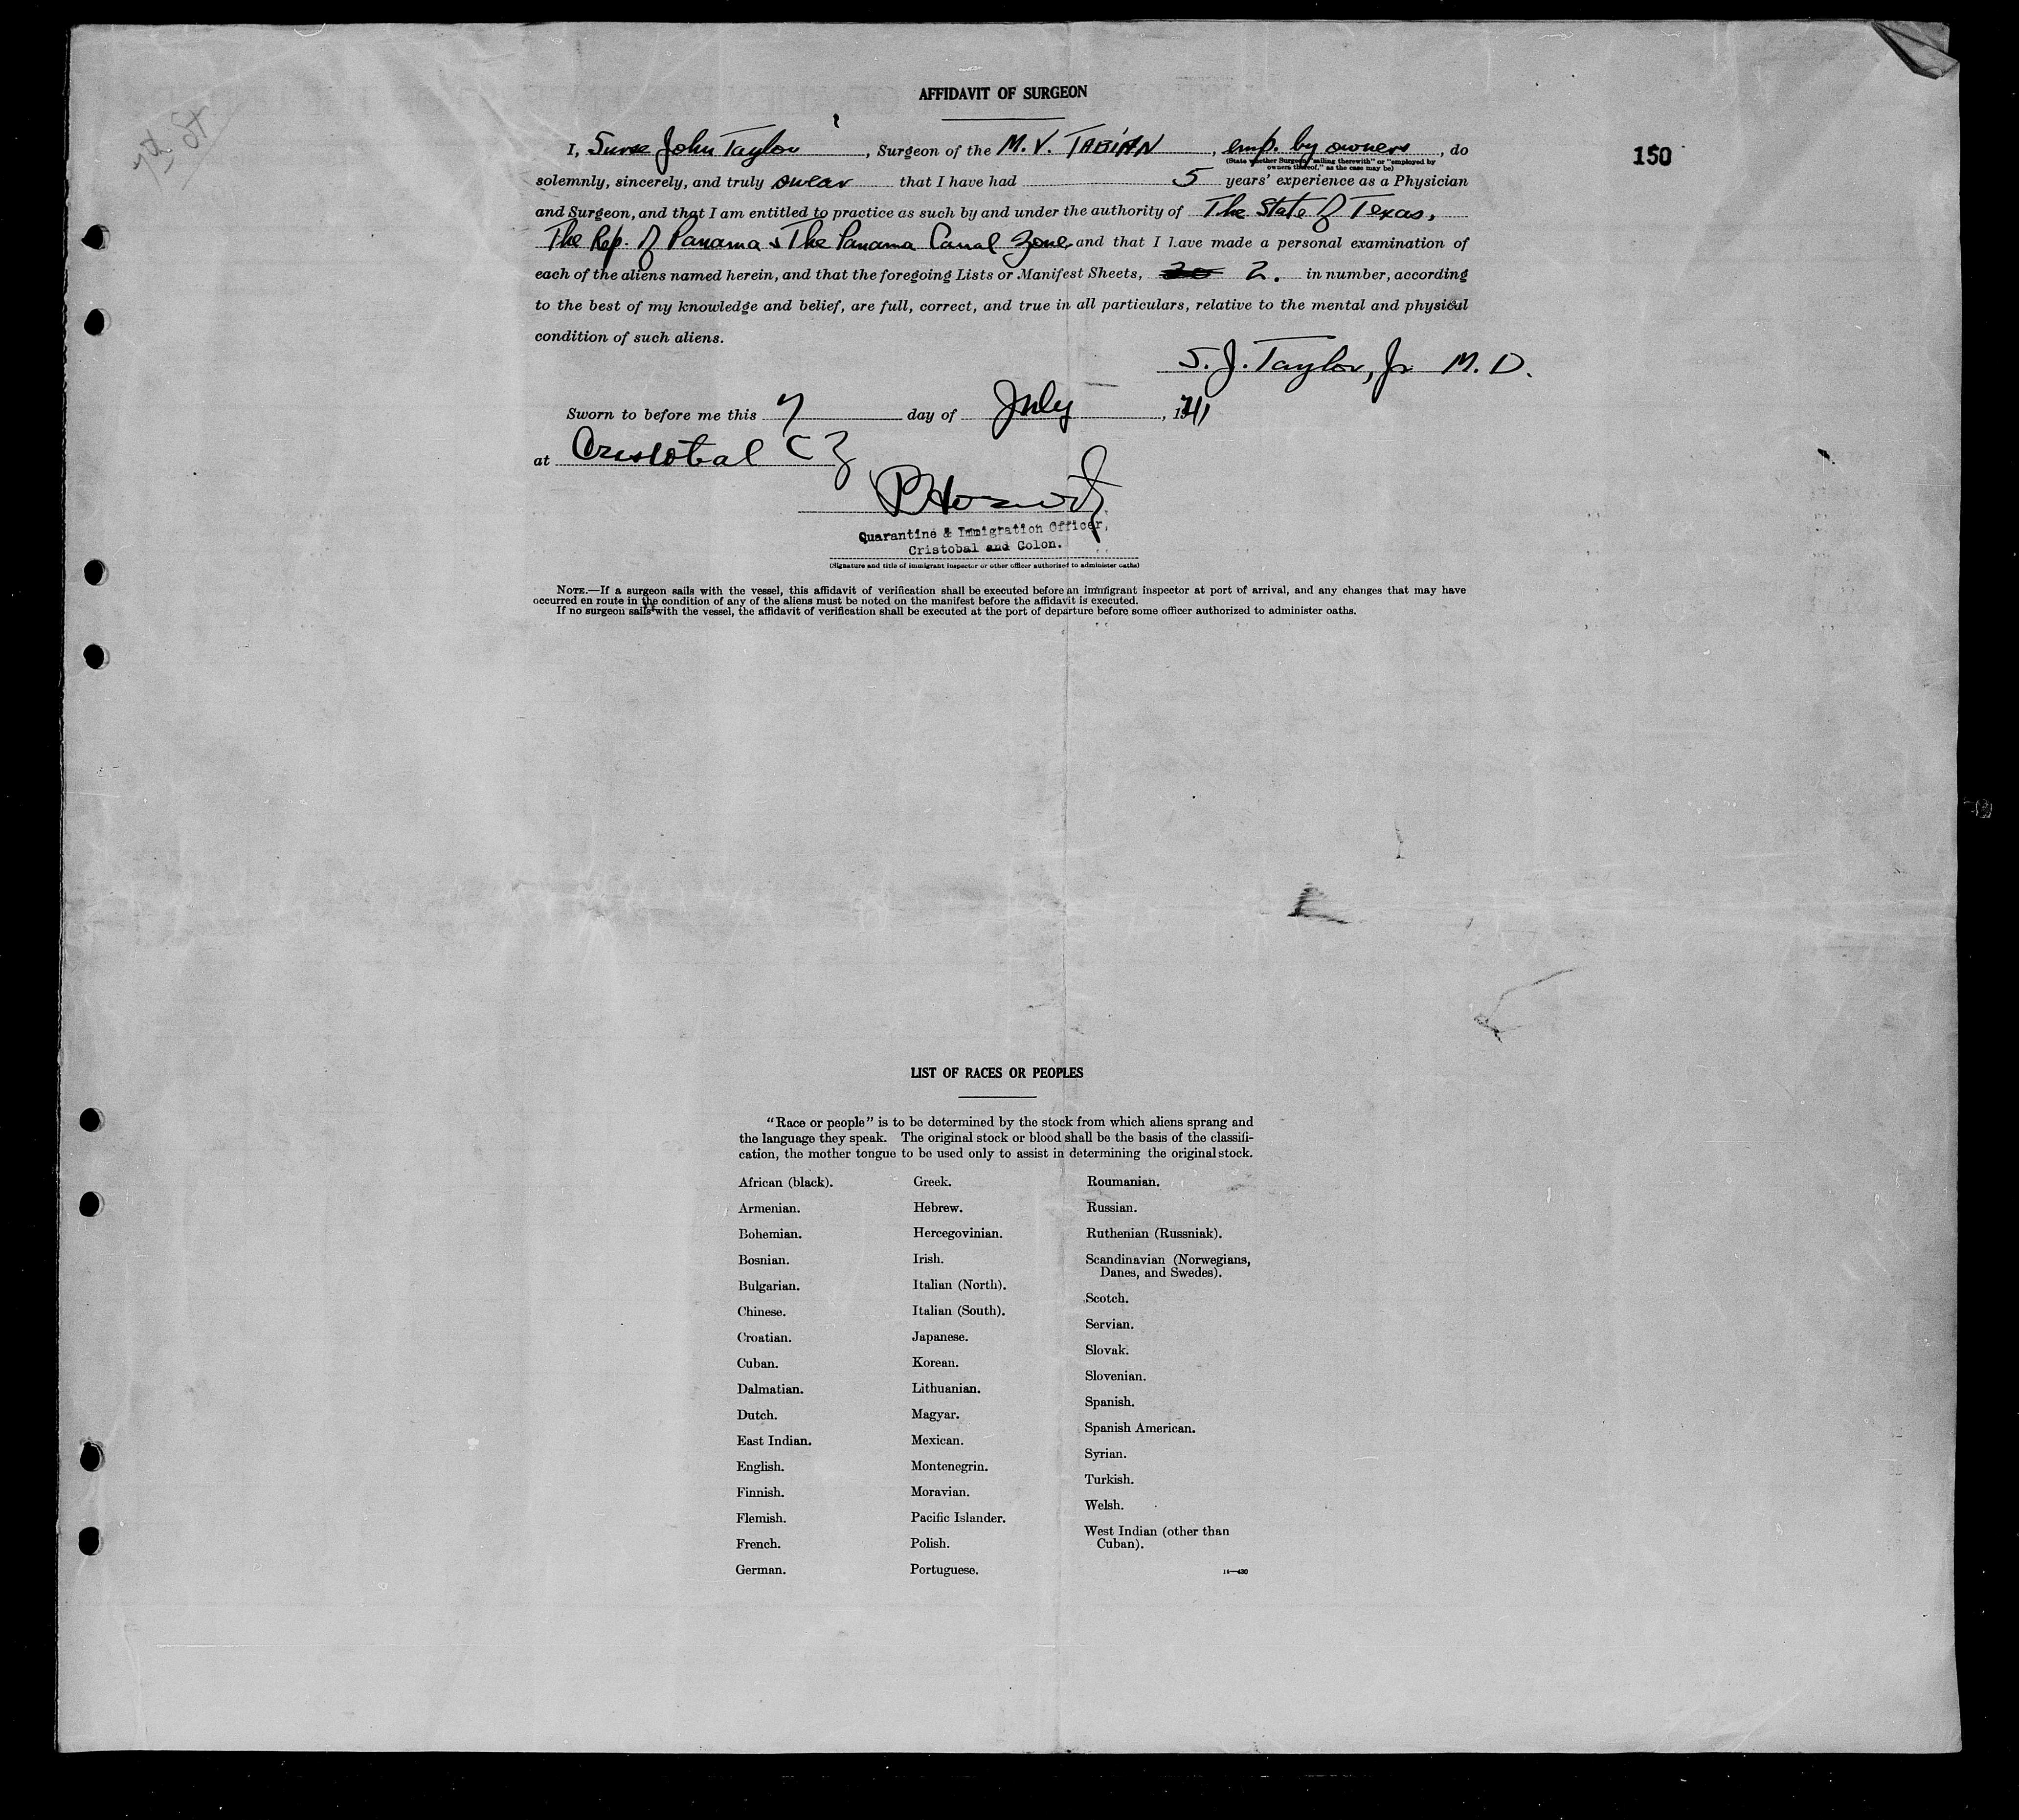 AFFIDAVIT OF SURGEON
150
I, John Taylor, Surgeon of the M. V. TABIAN, emp. by owners, do
(State whether Surgeon "sailing therewith" or "employed by
owners thereof," as the case may be)
solemnly, sincerely, and truly swear that I have had 5 years' experience as a Physician
and Surgeon, and that I am entitled to practice as such by and under the authority of The State of Texas,
The Rep. of Panama & The Panama Canal Zone and that I have made a personal examination of
each of the aliens named herein, and that the foregoing Lists or Manifest Sheets, 2. in number, according
to the best of my knowledge and belief, are full, correct, and true in all particulars, relative to the mental and physical
condition of such aliens.
S. J. Taylor, Jr M. D.
Sworn to before me this 7 day of July, 1941
at Cristobal C Z
Quarantine & Immigration Officer,
Cristobal and Colon.
(Signature and title of immigrant inspector or other officer authorized to administer oaths)
NOTE.—If a surgeon sails with the vessel, this affidavit of verification shall be executed before an immigrant inspector at port of arrival, and any changes that may have
occurred en route in the condition of any of the aliens must be noted on the manifest before the affidavit is executed.
If no surgeon sails with the vessel, the affidavit of verification shall be executed at the port of departure before some officer authorized to administer oaths.
LIST OF RACES OR PEOPLES
"Race or people" is to be determined by the stock from which aliens sprang and
the language they speak. The original stock or blood shall be the basis of the classifi-
cation, the mother tongue to be used only to assist in determining the original stock.
African (black).
Armenian.
Bohemian.
Bosnian.
Bulgarian.
Chinese.
Croatian.
Cuban.
Dalmatian.
Dutch.
East Indian.
English.
Finnish.
Flemish.
French.
German.
Greek.
Hebrew.
Hercegovinian.
Irish.
Italian (North).
Italian (South).
Japanese.
Korean.
Lithuanian.
Magyar.
Mexican.
Montenegrin.
Moravian.
Pacific Islander.
Polish.
Portuguese.
Roumanian.
Russian.
Ruthenian (Russniak).
Scandinavian (Norwegians,
Danes, and Swedes).
Scotch.
Servian.
Slovak.
Slovenian.
Spanish.
Spanish American.
Syrian.
Turkish.
Welsh.
West Indian (other than
Cuban).